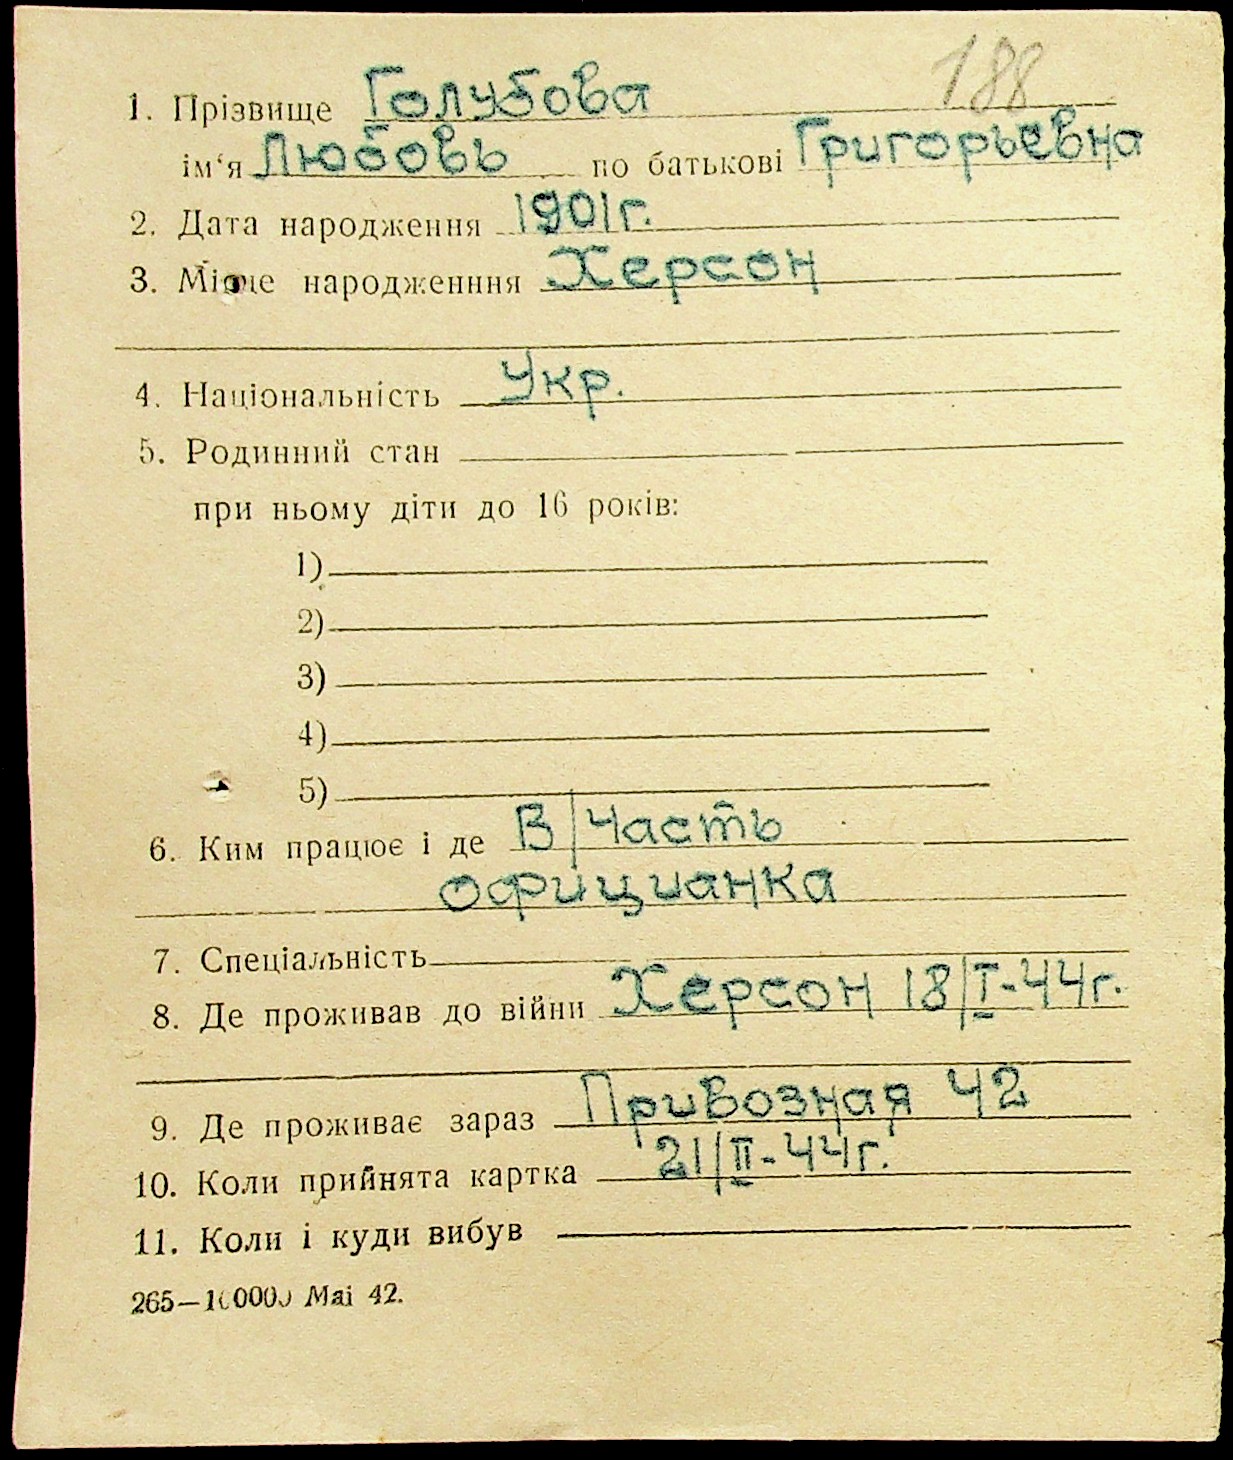 188
1. Прізвище Голубова
ім‘я Любовь по батькові Григорьевна
2. Дата народження 1901г.
3. Місце народженння Херсон
4. Національність Укр.
5. Родинний стан
при ньому діти до 16 років:
1)
2)
3)
4)
5)
6. Ким працює і де В/Часть
официанка
7. Спеціальність
8. Де проживав до війни Херсон 18/I-44г.
9. Де проживає зараз Привозная 42
10. Коли прийнята картка 21/II-44г.
11. Коли і куди вибув
265—10000) Mai 42.